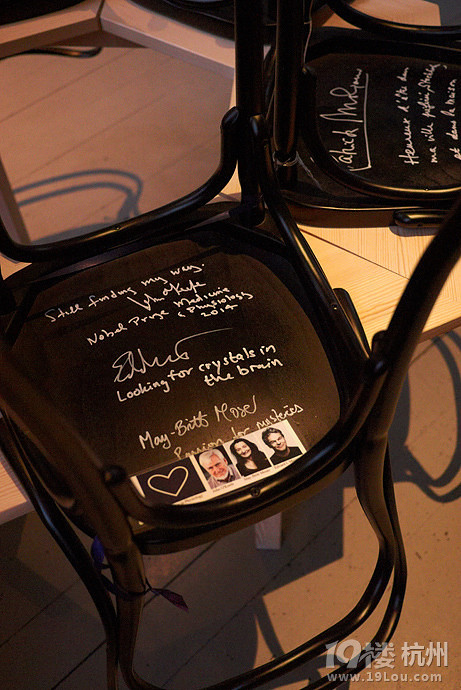 Still finding my way.
John O'Keefe
Nobel Prize Medicine
& Physiology
2014
Looking for crystals in
the brain
May-Britt Moser
Passion for mysteries
Patrick Modiano
Heureux d'être dans
ma ville préférée, Stockholm
et dans la maison
19楼 杭州
www.19Lou.com